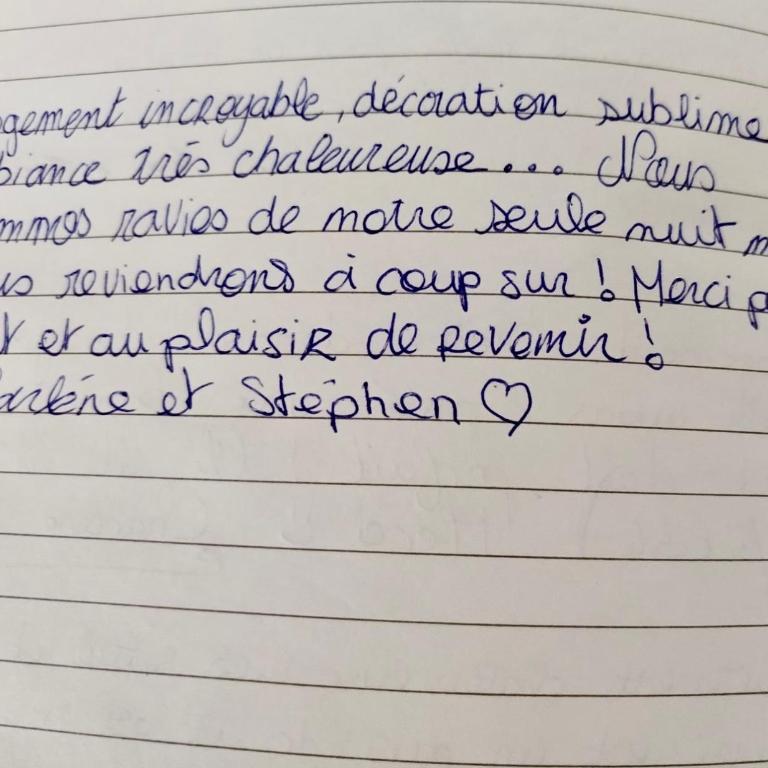 gement incroyable, décoration sublime
biance très chaleureuse... Nous
mmes ravies de notre seule nuit m
us reviendrons à coup sur ! Merci p
t et au plaisir de revenir !
arlène et Stéphen ♡